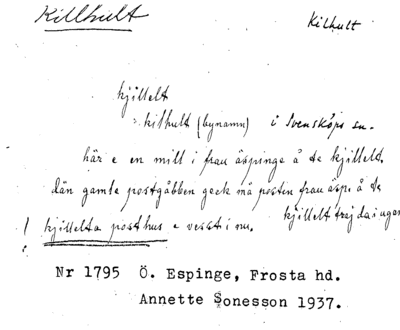 Killhult
Kilhult
kjillelt
: kilhult (bynamn) i Svensköps sn.
här e en mill i frau äspinge å te kjillelt.
dän gamle postgåbben geck må posten frau äspi å te
kjillelt trej da i ugen
! kjillelta posthus e vesst i nu.
Nr 1795 Ö. Espinge, Frosta hd.
Annette Sonesson 1937.